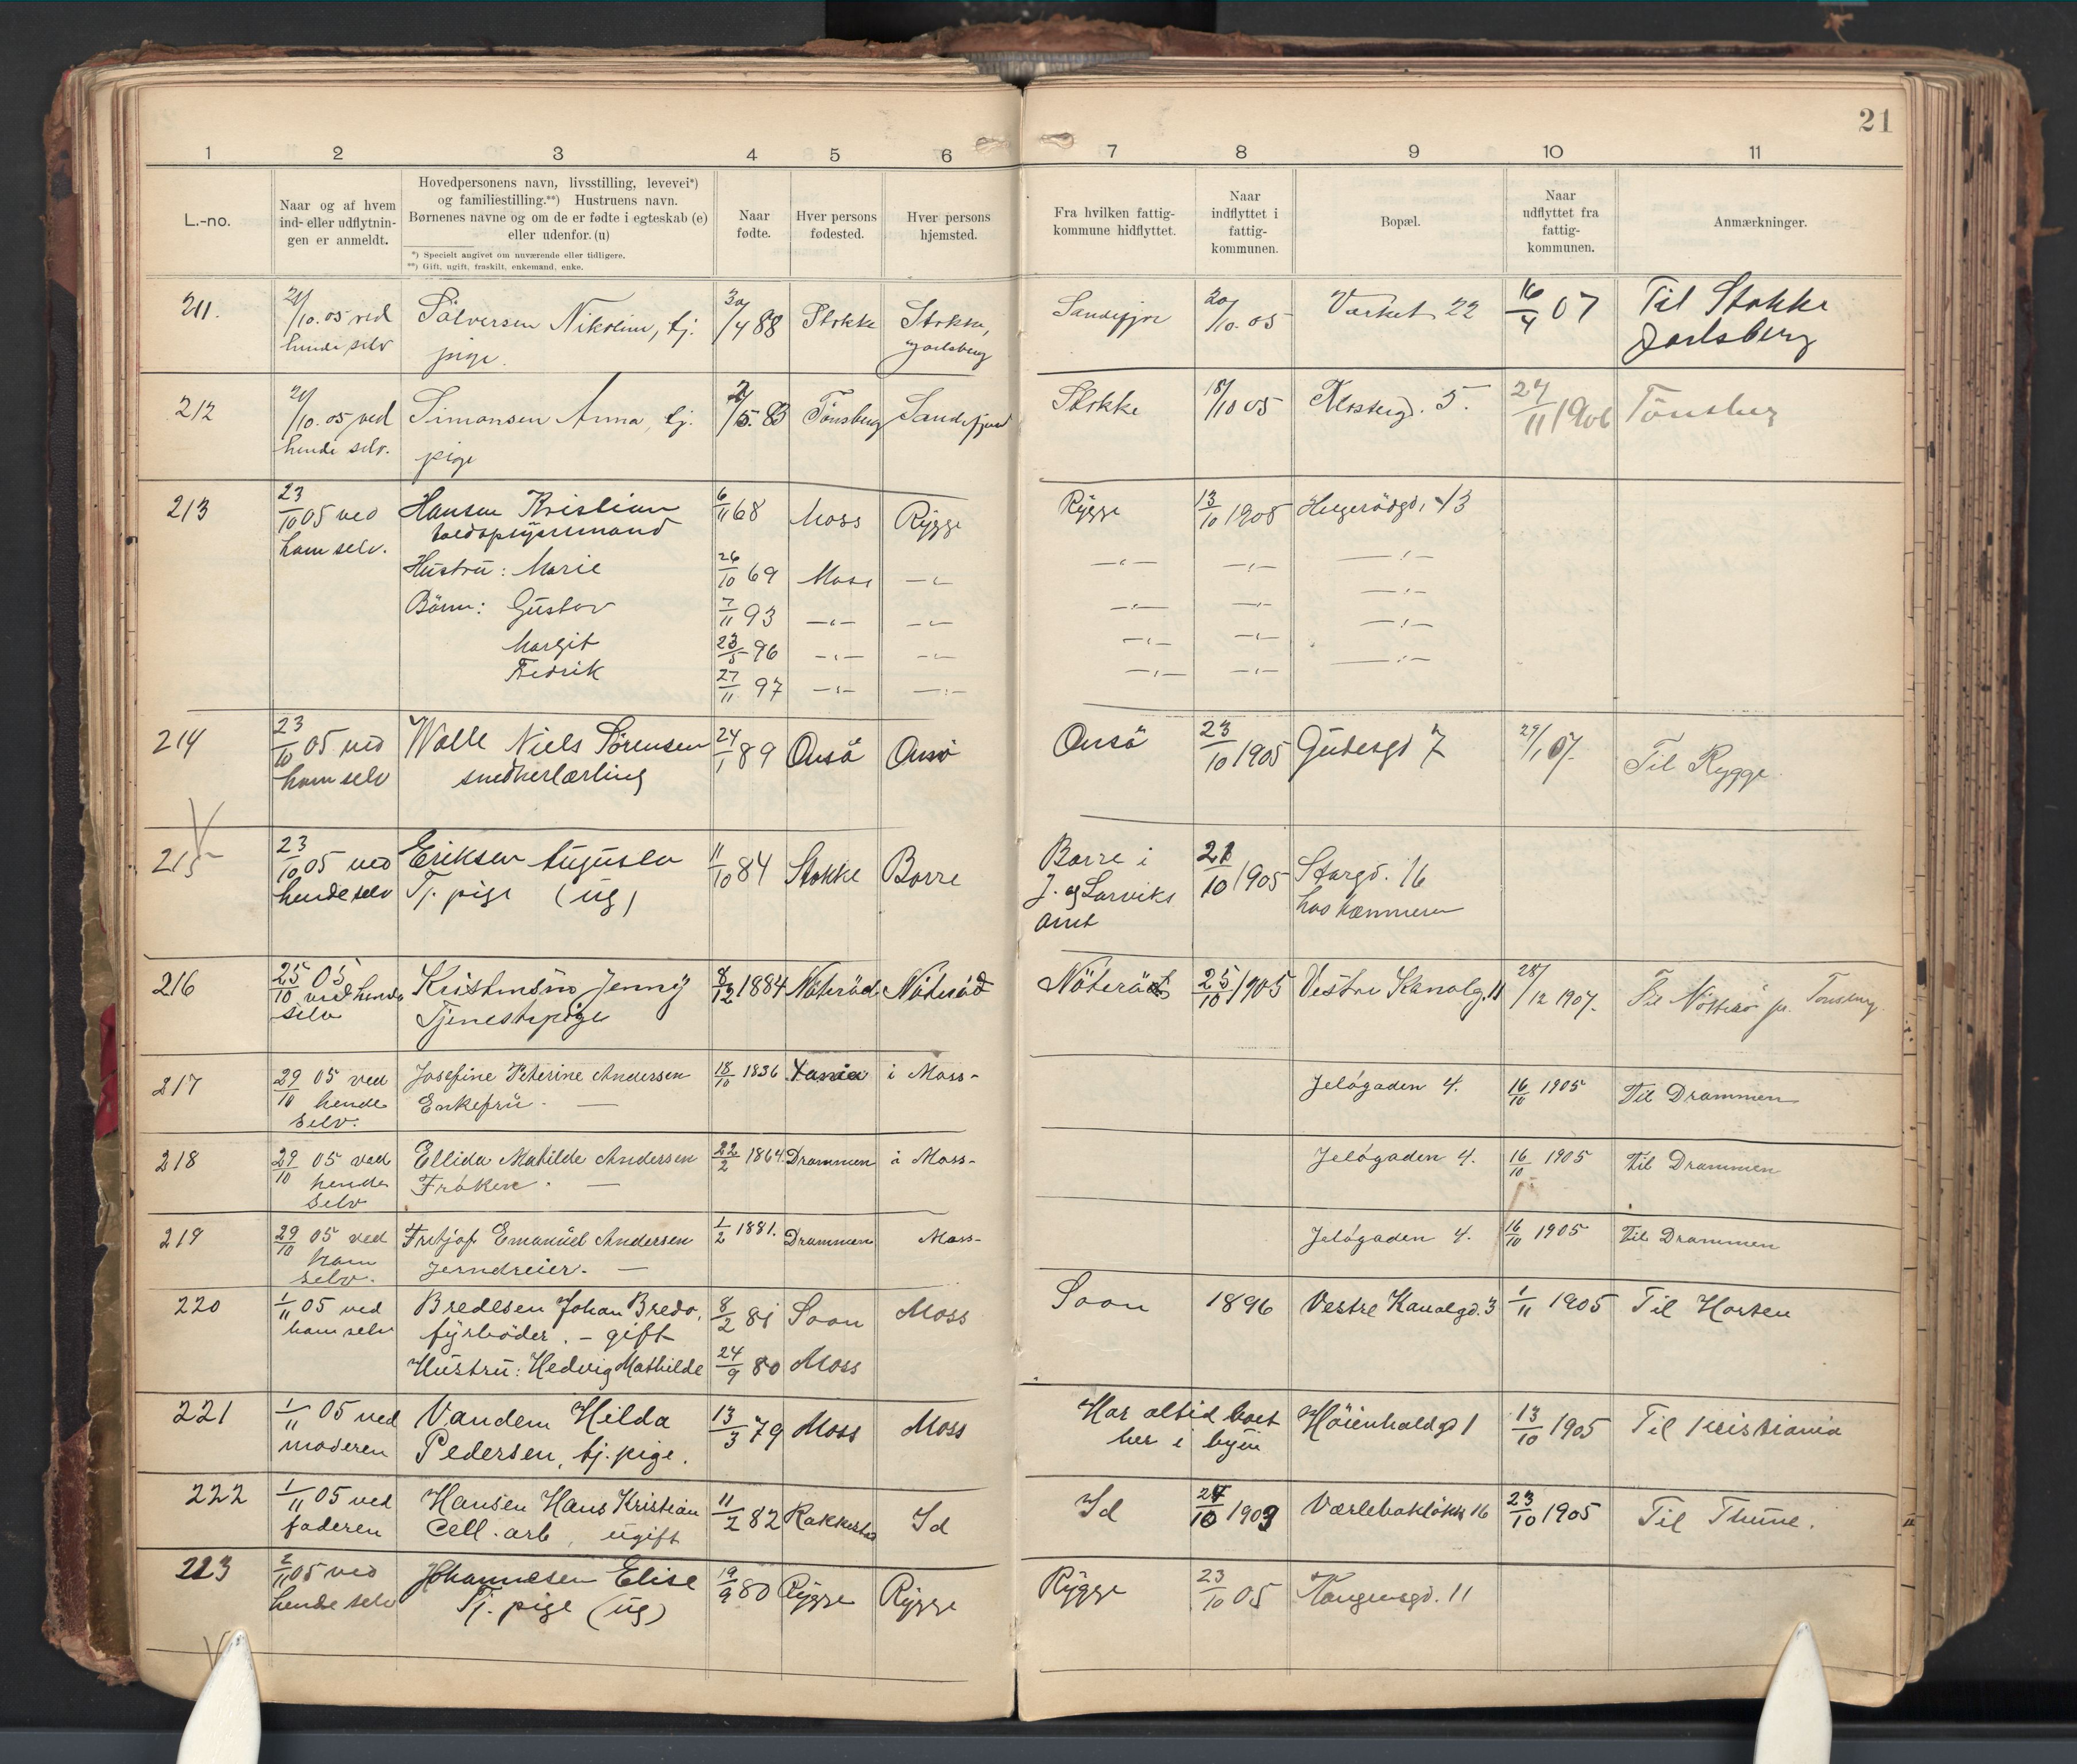 21
1 2 3 4 5 6 7 8 9 10 11
L.-no.
Naar og af hvem
ind- eller udflytnin-
gen er anmeldt.
Hovedpersonens navn, livsstilling, levevei*)
og familiestilling.**) Hustruens navn.
Børnenes navne og om de er fødte i egteskab (e)
eller udenfor. (u)
*) Specielt angivet om nuværende eller tidligere.
**) Gift, ugift, fraskilt, enkemand, enke.
Naar
fødte.
Hver persons
fødested.
Hver persons
hjemsted.
Fra hvilken fattig-
kommune hidflyttet.
Naar
indflyttet i
fattig-
kommunen.
Bopæl.
Naar
udflyttet fra
fattig-
kommunen.
Anmærkninger.
211. 21/10.05 ved Sølversen Nikoline, tj. 30/4 88 Stokke Stokke, Sandefjord 20/10.05 Værket 22 16/4 07 Til Stokke
hende selv pige. Jarlsberg Jarlsberg
212 21/10.05 ved Simonsen Anna, tj. /5.83 Tønsberg Sandefjord Stokke 18/10 05 Klosterg. 5. 27/11 1906 Tønsberg
hende selv. pige
213 23/10 05 ved Hansen Kristian 6/11 68 Moss Rygge Rygge 13/10 1905 Helgerødgd. 43
ham selv.
Hustru: Marie 26/10 69 Moss —"— —"— —"— —"—
Børn: Gustav 7/11 93 —"— —"— —"— —"— —"—
Margit 23/5 96 —"— —"— —"— —"— —"—
Fredrik 27/11 97 —"— —"— —"— —"— —"—
214 23/10 05 ved Walle Niels Sørensen 24/1 89 Onsø Onsø Onsø 23/10 1905 Gudesgd 7 29/1 07. Til Rygge
ham selv snedkerlærling
215 23/10 05 ved Eriksen Augusta 11/10 84 Stokke Borre Borre i 21/10 1905 Storgd. 16
hende selv Tj. pige (ug) J. og Larviks hos kæmneren
amt
216 25/10 05 Kristensen Jenny 8/12 1884 Nøterød Nøterød Nøterø 25/10 1905 Vestre Kanalg. 11 28/12 1907. Til Nøtterø pr. Tønsberg
ved hende
selv Tjenestepige
217 29/10 05 ved Josefine Peterine Andersen 18/10 1836 i Moss- Jeløgaden 4. 16/10 1905 Til Drammen
hende Enkefru. —
selv.
218 29/10 05 ved Ellida Matilde Andersen 22/2 1864. Drammen i Moss- Jeløgaden 4. 16/10 1905 Til Drammen
hende Frøken. —
selv
219 29/10 05 ved Fritjof Emanuel Andersen 1/2 1881. Drammen Moss- Jeløgaden 4. 16/10 1905 Til Drammen
ham Jerndreier. —
selv.
220 1/11 05 ved Bredesen Johan Bredo, 8/2 81 Soon Moss Soon 1896 Vestre Kanalgd. 3 1/11 1905 Til Horten
ham selv fyrbøder. - gift
Hustru: Hedvig Mathilde 24/9 80 Moss
221 1/11 05 ved Vandem Hilda 13/3 79 Moss Moss Har altid boet Høienhaldgd 1 13/10 1905 Til Kristiania
moderen Pedersen, tj. pige. her i byen
222 1/11 05 ved Hansen Hans Kristian 11/2 82 Rakkestad Id Id 24/10 1903 Værlebakløkk 16 23/10 1905 Til Thune.
faderen Cell. arb, ugift
223 2/11 05 ved Johannesen Elise 19/9 80 Rygge Rygge Rygge 23/10 05 Kongensgd. 11
hende selv Tj. pige (ug)